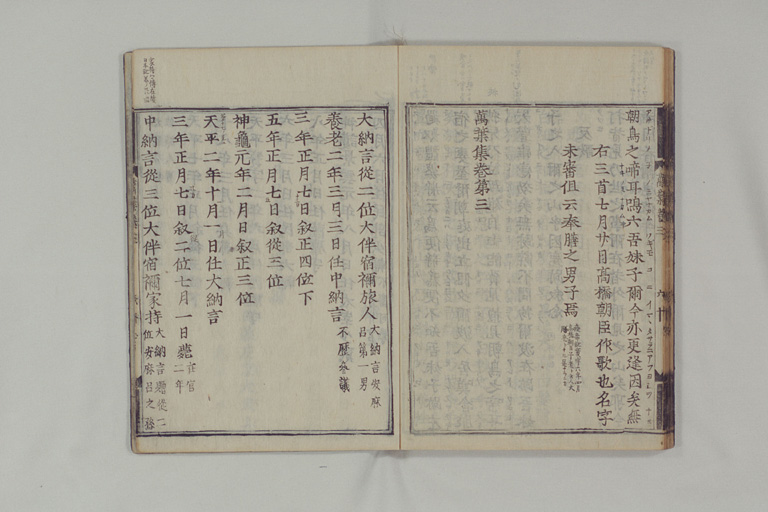 朝鳥之啼耳鳴六吾妹子爾今亦更逢因矣無
右三首七月廿日髙橋朝臣作歌也名字
未審但云奉膳之男子焉
萬葉集巻第三
大納言從二位大伴宿禰旅人大納言安麻呂第一男
養老二年三月三日任中納言不歴参議
三年正月七日叙正四位下
五年正月七日叙從三位
神龜元年二月日叙正三位
天平二年十月一日任大納言
三年正月七日叙二位七月一日薨在官二年
中納言從三位大伴宿禰家持大納言贈從二位安麻呂之孫